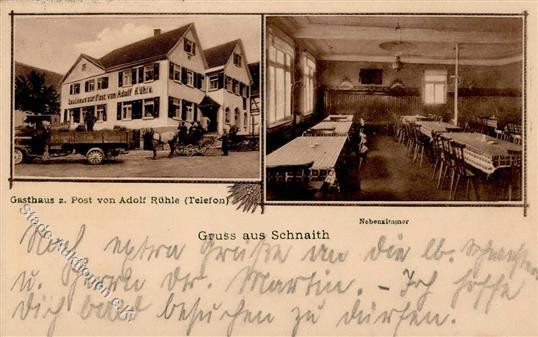 Gasthaus zur Post von Adolf Rühle
Gasthaus z. Post von Adolf Rühle (Telefon)
Nebenzimmer
Gruss aus Schnaith
Noch extra Grüße an die lb. Schwester
u. Herrn Dr. Martin. – Ich hoffe
Dich bald besuchen zu dürfen.